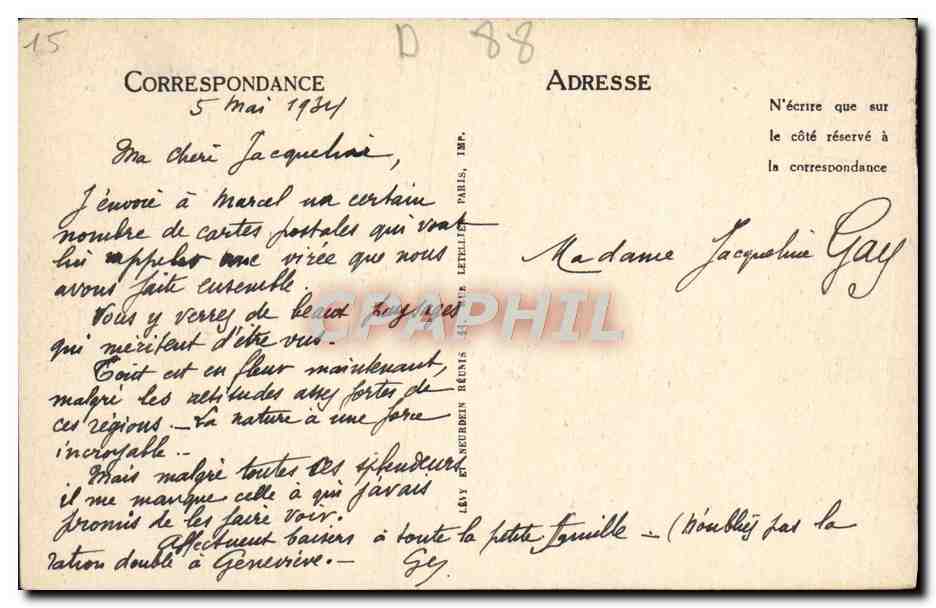 15
D 88
CORRESPONDANCE
ADRESSE
5 Mai 1934
N'écrire que sur
le côté réservé à
la correspondance
Ma cheri Jacqueline,
J'envoie à Marcel un certain
nombre de cartes postales qui vont
lui appeler une virée que nous
avons faite ensemble.
Vous y verrez de beaux paysages
qui méritent d'être vus.
Tout est en fleur maintenant,
malgré les altitudes assez fortes de
ces régions. — La nature a une force
incroyable..
Mais malgré toutes ces splendeurs
il me manque celle à qui j'avais
promis de les faire voir.
Affectueux baisers à toute la petite famille — (N'oubliez pas la
ration double à Geneviève. —
Madame Jacqueline Gay
LÉVY ET NEURDEIN RÉUNIS 44 RUE LETELLIER PARIS, IMP.
CPAPHIL